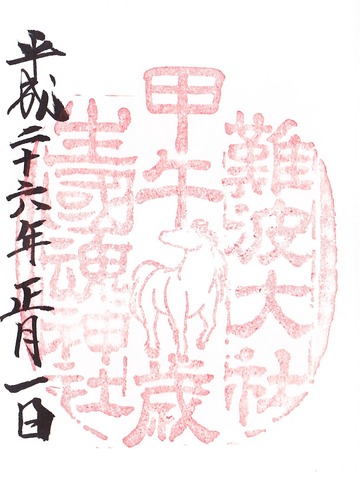 難波大社
甲午歳
生國魂神社
平成二十六年正月一日